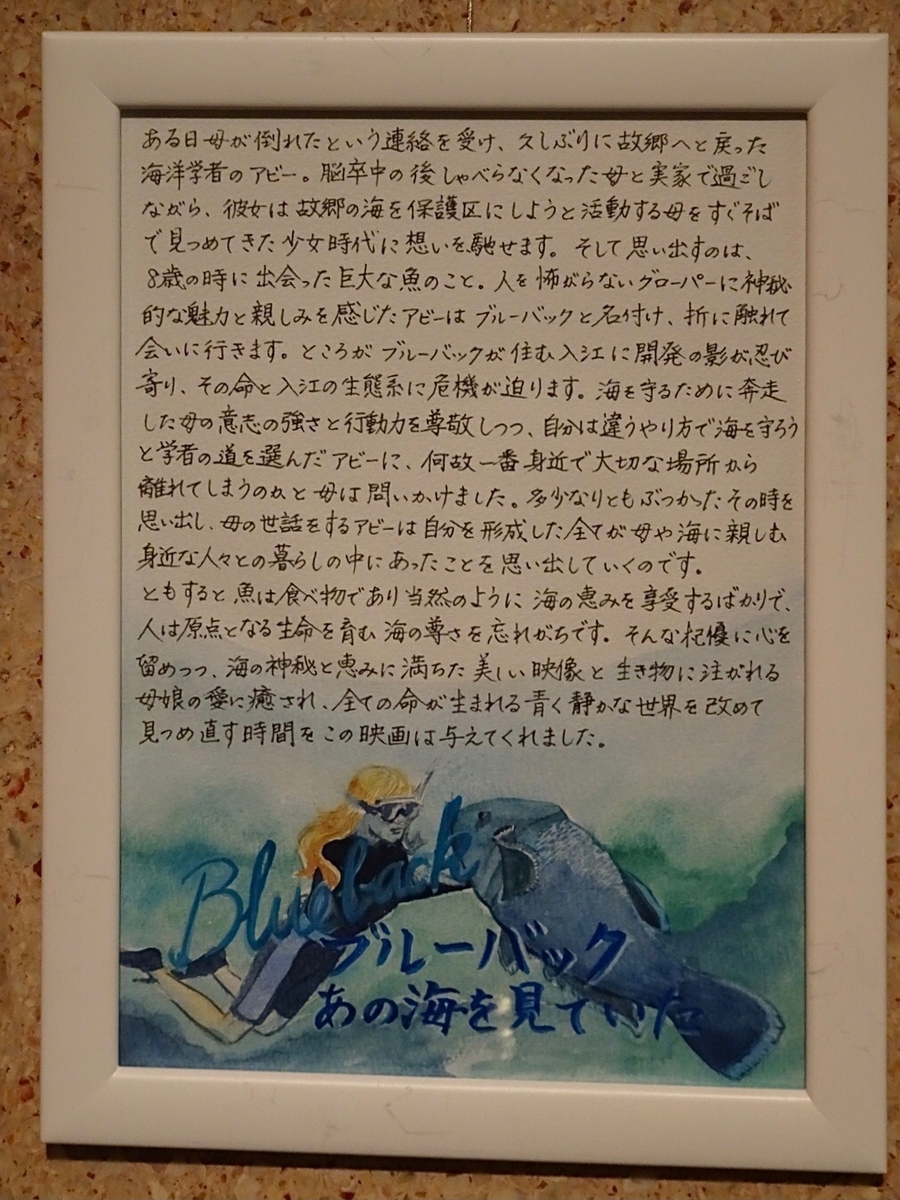 ある日母が倒れたという連絡を受け、久しぶりに故郷へと戻った
海洋学者のアビー。脳卒中の後しゃべらなくなった母と実家で過ごし
ながら、彼女は故郷の海を保護区にしようと活動する母をすぐそば
で見つめてきた少女時代に想いを馳せます。そして思い出すのは、
8歳の時に出会った巨大な魚のこと。人を怖がらないグローパーに神秘
的な魅力と親しみを感じたアビーはブルーバックと名付け、折に触れて
会いに行きます。ところがブルーバックが住む入江に開発の影が忍び
寄り、その命と入江の生態系に危機が迫ります。海を守るために奔走
した母の意志の強さと行動力を尊敬しつつ、自分は違うやり方で海を守ろう
と学者の道を選んだアビーに、何故一番身近で大切な場所から
離れてしまうのかと母は問いかけました。多少なりともぶつかったその時を
思い出し、母の世話をするアビーは自分を形成した全てが母や海に親しむ
身近な人々との暮らしの中にあったことを思い出していくのです。
ともすると魚は食べ物であり当然のように海の恵みを享受するばかりで、
人は原点となる生命を育む海の尊さを忘れがちです。そんな杞優に心を
留めつつ、海の神秘と恵みに満ちた美しい映像と生き物に注がれる
母娘の愛に癒され、全ての命が生まれる青く静かな世界を改めて
見つめ直す時間をこの映画は与えてくれました。
Blueback
ブルーバック
あの海を見ていた